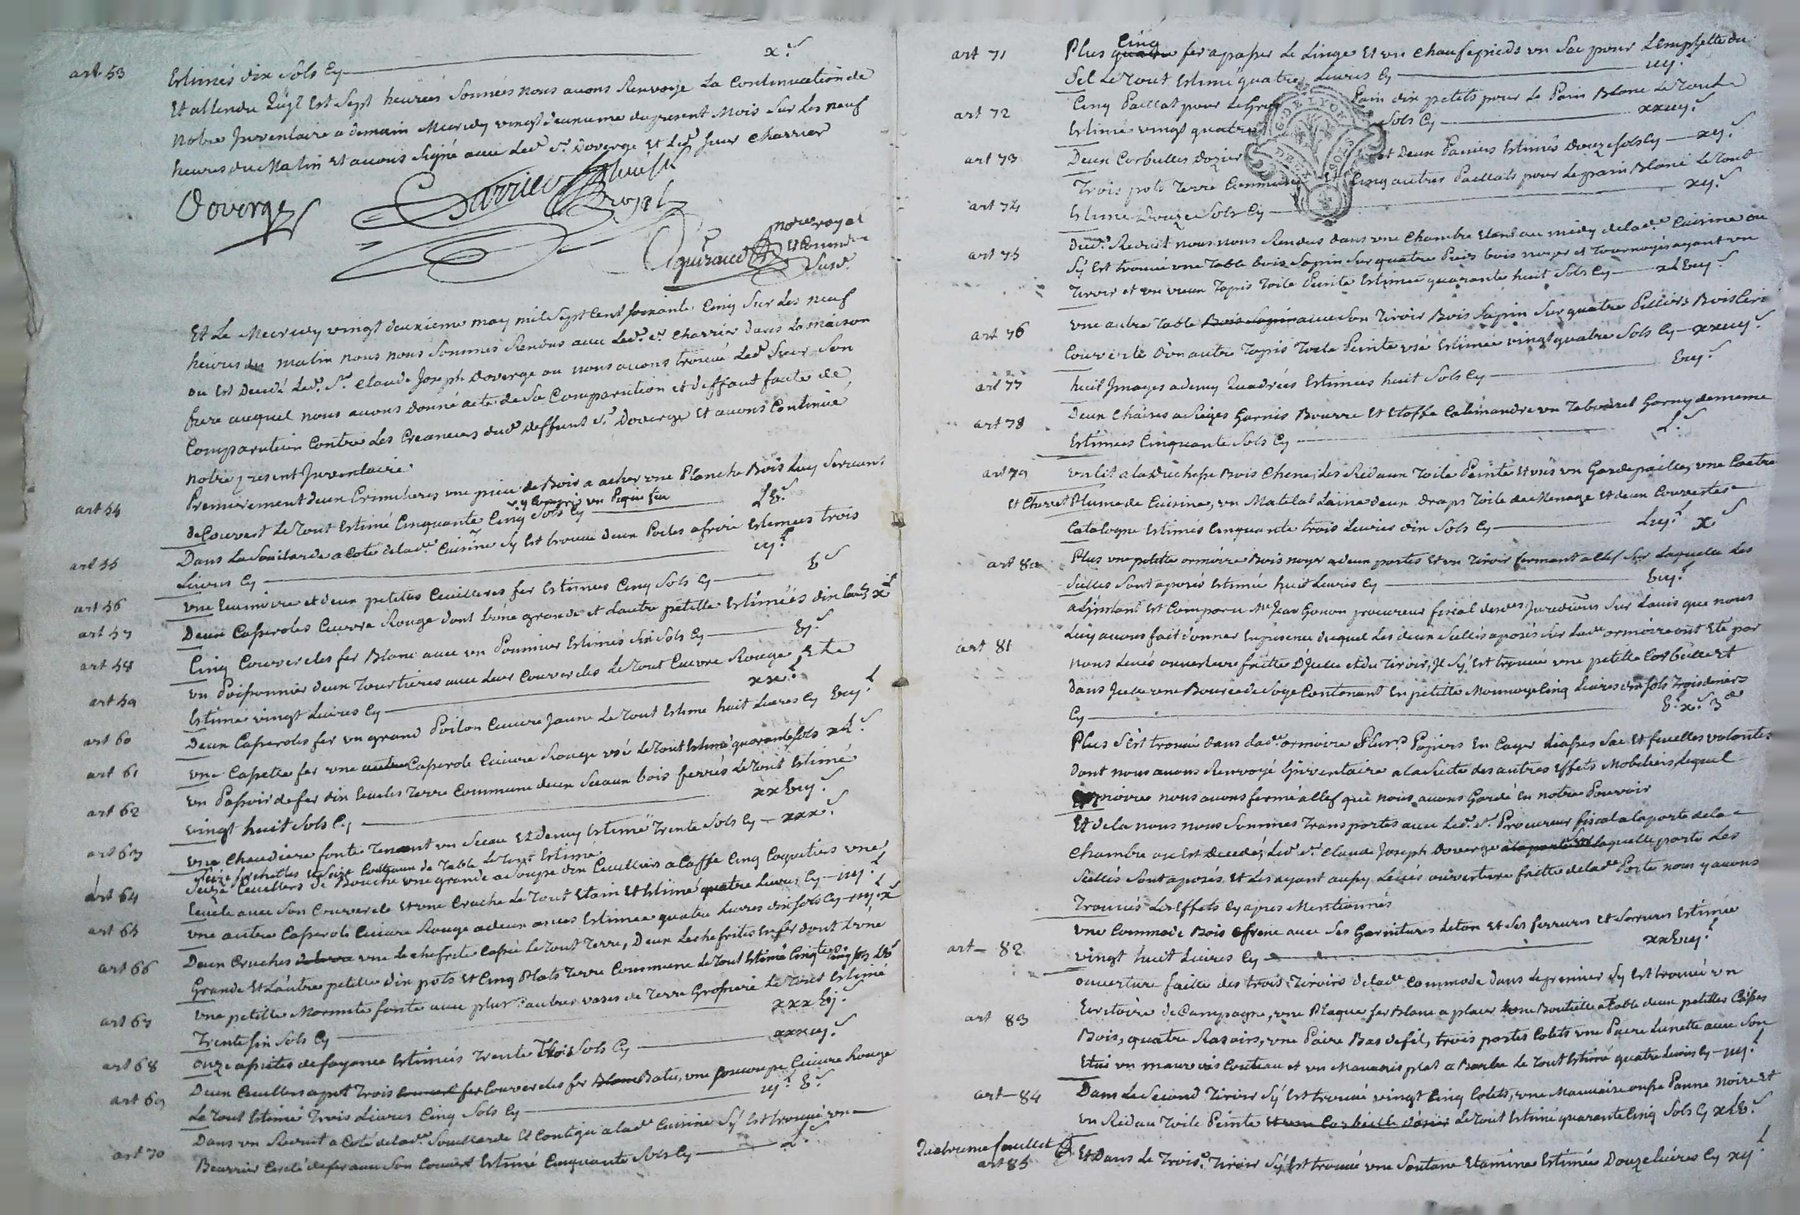 art 53 Estimés dix sols Cy x.s
Et attendu qu'il est sept heures sonnées nous avons Renvoyé La Continuation de
notre Inventaire a demain Mecredy vingt deuxieme du present Mois sur les neuf
heures du Matin et avons signé avec Led. Sr. Doverge et Led. Sieur Charrier
Doverge
Et Le Mecredy vingt deuxieme may mil sept Cent soixante Cinq sur les neuf
heures du matin nous nous sommes Rendus avec Led. Sr. Charrier dans La maison
ou Est Decedé Led. Sr. Claude Joseph Doverge ou nous avons trouvé Led. Sieur son
frere auquel nous avons donné acte de sa Comparution et deffaut faute de
Comparution Contre Les Creanciers dud. deffunt Sr. Doverge Et avons Continué
notre present Inventaire.
art 54 Premierement deux Cremelieres une piece de Bois a acher une Planche Bois
y Compris un Piquefeu
de Couvert Le Tout Estimé Cinquante Cinq Sols Cy L.V.s
art 55 Dans La Souilarde a Coté de lad. Cuisine sy Est trouvé deux Poeles a frire Estimées trois
Livres Cy iij.L
art 56 une Ecumoire et deux petites Cuilleres fer Estimées Cinq Sols Cy V.s
art 57 Deux Casseroles Cuivre Rouge dont L'une grande et L'autre petitte Estimées dix Livres x.L
art 58 Cinq Couvercles fer Blanc avec un Estimés six Sols Cy vj.s
art 59 un Poissonnier deux Tourtieres avec Leur Couvercles Le Tout Cuivre Rouge
Estimé vingt Livres Cy xx.L
art 60 Deux Casseroles fer un grand Poilon Cuivre Jaune Le Tout Estimé huit Livres Cy viij.L
art 61 une fer une autre Casserole Cuivre Rouge usé Le Tout Estimé quarante sols xL.s
art 62 un Passoir de fer dix Terre Commune deux Seaux bois ferrés Le Tout Estimé
vingt huit Sols Cy xxviij.s
art 63 une Chaudiere fonte Tenant un Seau Et demy Estimé Trente Sols Cy xxx.s
Seize fourchettes et Seize Couteaux de Table Le Tout Estimé
art 64 Seize Cuillers de Bouche une grande a Soupe dix Cuilleres a Caffe Cinq Coquetiers une
avec son Couvercle Et une Cruche Le Tout Etain Et Estimé quatre Livres Cy iiij.L
art 65 une autre Casserole Cuivre Rouge a deux anses Estimée quatre Livres dix sols Cy iiij.L x.s
art 66 Deux Cruches une Lechefrite Cassée Le Tout Terre, Deux Lechefrites Enfer dont L'une
Grande Et L'autre petitte dix pots Et Cinq Plats Terre Commune Le Tout Estimé
art 67 une petitte Marmite fonte avec plus.rs autres vases de Terre Grossiere Le Tout Estimé
Trente six Sols Cy xxxvj.s
art 68 onze assietes de fayance Estimées Trente Trois Sols Cy xxxiij.s
art 69 Deux Cuillers a pot Trois Couvercles fer Batu, une Cuivre Rouge
Le Tout Estimé Trois Livres Cinq Sols Cy iij.L V.s
art 70 Dans un Reduit a Coté de lad. Souillarde Et Contigu a lad. Cuisine Sy Est trouvé un
Beurrier Cerclé de fer avec Son Couvert Estimé Cinquante Sols Cy L.s
art 71 Plus Cinq fer a passer Le Linge Et un Chaufepieds un Sac pour L'Emplette du
Sel Le Tout Estimé quatre Livres Cy iiij.L
art 72 Cinq Paillas pour Le Gros Pain dix petits pour Le Pain Blanc Le Tout
Estimé vingt quatre Sols Cy xxiiij.s
G. DE LYON
DEUX SOLS
art 73 Deux Corbelles et Deux Paniers Estimés Douze Sols Cy xij.s
art 74 Trois pots Terre Commune Cinq autres Paillats pour Le grain Blanc Le Tout
Estimé Douze Sols Cy xij.s
art 75 Dud. Reduit nous nous Rendus dans une Chambre Etant au midy de lad. Cuisine ou
Sy Est trouvé une Table bois Sapin Sur quatre Pieds bois noyer et Tournoyés ayant un
Tiroir et un vieux Tapis Toile Peinte Estimée quarante huit Sols Cy xLviij.s
art 76 une autre Table Bois Sapin avec son Tiroir Bois Sapin Sur quatre Pilliers Bois
Couverte d'un autre Tapis Toile Peinte usé Estimée vingt quatre Sols Cy xxiiij.s
art 77 huit Images a demy Quadrées Estimées huit Sols Cy viij.s
art 78 Deux Chaises a Sieges Garnis Bourre Et Etoffe Calemandre un Tabouret Garny de meme
Estimées Cinquante Sols Cy L.s
art 79 un Lit a la Duchesse Bois Chene, Les Rideaux Toile Peinte Et usés un Gardepailles, une Coetre
Et Chevet Plume de Cuisine, un Matelat Laine deux draps Toile de Menage Et deux Couvertes
Catalogne Estimés Cinquante trois Livres dix Sols Cy Liij.L x.s
art 80 Plus une petitte ormoire Bois noyer a deux portes Et un Tiroir fermant a Clef Sur Laquelle Les
Scellés Sont aposés Estimée huit Livres Cy viij.L
a L'instant Est Comparu Me. Jean Gonon procureur fiscal Sur L'avis que nous
art 81 Luy avons fait donner En presence duquel Les deux Scellés aposés Sur lad. ormoire ont Eté par
nous Levés ouverture faitte D'Icelle et du Tiroir, Il Sy Est trouvée une petitte Corbeille et
Dans Icelle une Bource de Soye Contenant En petitte Monnoye Cinq Livres dix Sols Trois deniers
Cy V.L x.s 3.d
Plus S'est trouvé dans lad. ormoire Plus.rs Papiers En Cayer Liasses Sac Et feuilles volantes
dont nous avons Renvoyé L'inventaire a la Suite des autres Effets Mobiliers Lequel
ormoire nous avons fermé a Clef que nous avons Gardé En notre Pouvoir
Et de la nous nous Sommes Transportés avec Led. Sr. Procureur fiscal a la porte de la
Chambre ou Est decedé Led. Sr. Claude Joseph Doverge Laquelle porte Les
Scellés Sont aposés. Et Les ayant aussy Levés ouverture faitte de lad. Porte nous y avons
Trouvés Les Effets Cy apres Mentionnés
art 82 une Commode Bois avec Ses Garnitures Leton et Ses ferrures Et Serrures Estimée
vingt huit Livres Cy xxviij.L
ouverture faitte des trois Tiroirs de lad. Commode dans Le premier Sy Est trouvé un
art 83 Ecritoire de Campagne, une Plaque fer Blanc a placer une Bouteille a Table deux petittes Caisses
Bois, quatre Rasoirs, une Paire Bas de fil, trois portes Colets une Paire Lunette avec Son
Etuis un mauvais Couteau et un Mauvais plat a Barbe Le Tout Estimé quatre Livres Cy iiij.L
art 84 Dans Le Second Tiroir Sy Est trouvé vingt Cinq Colets, une Mauvaise Panne noire et
un Rideau Toile Peinte Le Tout Estimé quarante Cinq Sols Cy xLV.s
Quatrieme feuillet
art 85 Et Dans Le Trois.e Tiroir Sy Est trouvé une Soutane Etamine Estimée Douze Livres Cy xij.L